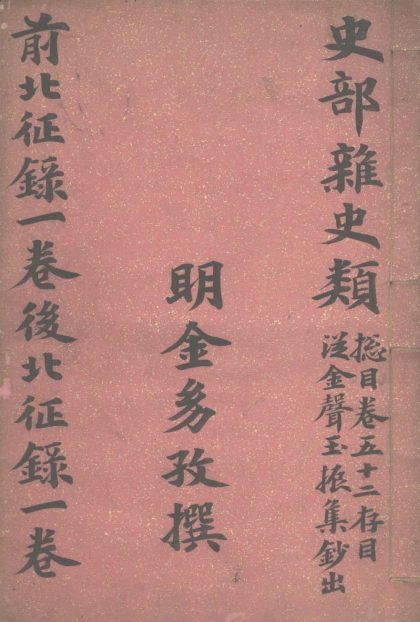 史部雜史類
總目卷五十二存目
從金聲玉振集鈔出
明金㓜孜撰
前北征錄一卷後北征錄一卷